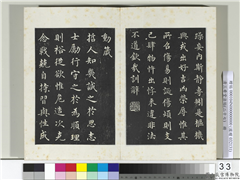 躁妄內斯靜專矧是樞機
興戎出好吉凶榮辱惟其
所召傷易則誕傷煩則支
己肆物忤出悖來違非法
不道欽哉訓辭
動箴
哲人知幾誠之於思志
士勵行守之於為順理
則裕從欲惟危造次克
念戰兢自持習與性成
33